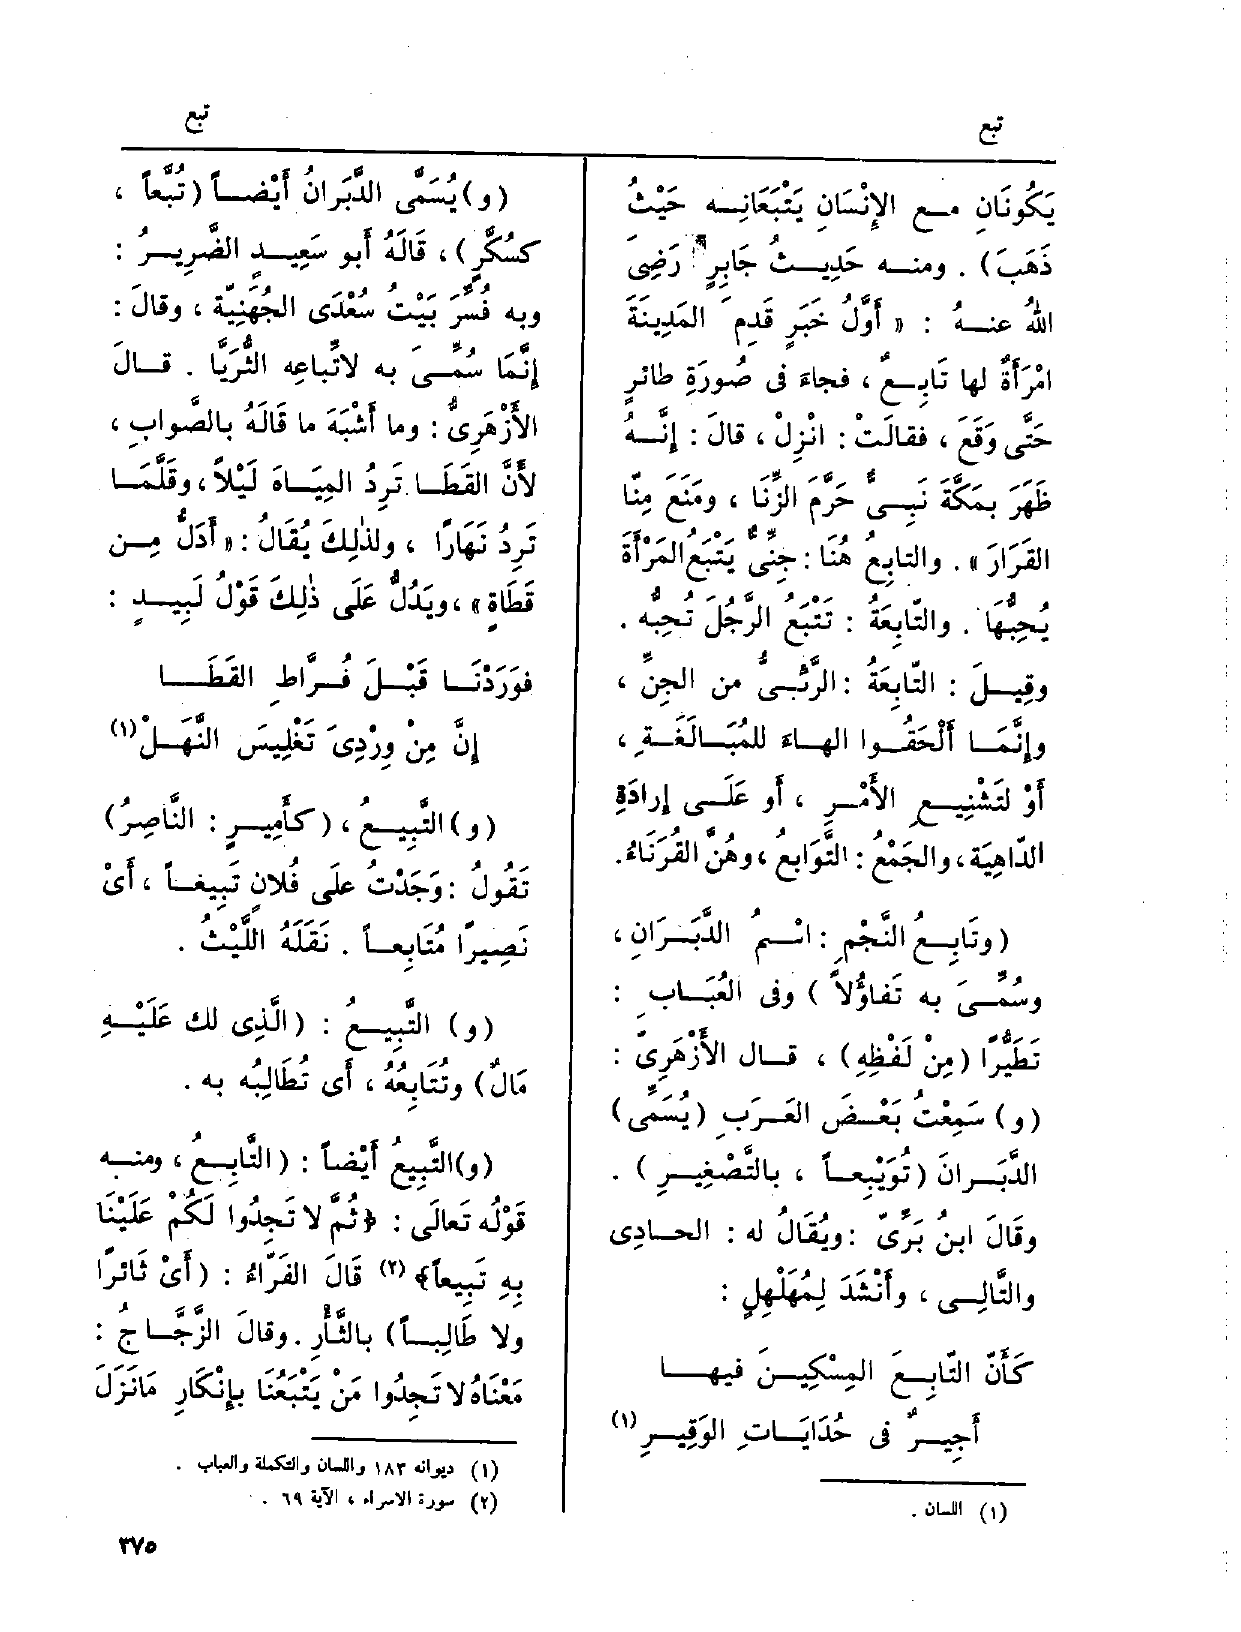 تبع
تبع
يَكُونَانِ مـع الإِنْسَانِ يَتْبَعَانِـه حَيْثُ
ذَهَبَ) . ومنـه حَدِيـثُ جَابِرٍ رَضِىَ
اللهُ عنـهُ : « أَوَّلُ خَبَرٍ قَدِمَ المَدِينَةَ
امْرَأَةٌ لها تَابِـعٌ ، فجاءَ فى صُورَةِ طائرٍ
حَتَّى وَقَعَ ، فقالَتْ : انْزِلْ ، قالَ : إِنَّـهُ
ظَهَرَ بمَكَّةَ نَبِـىٌّ حَرَّمَ الزِّنَا ، ومَنَع مِنّا
القَرَارَ » . والتابِعُ هُنَا : جِنِّىٌّ يَتْبَعُ المَرْأَةَ
يُحِبُّهَا . والتّابِعَةُ : تَتْبَعُ الرَّجُلَ تُحِبُّه .
وقِيـلَ : التّابِعَةُ : الرَّئِىُّ من الجِنِّ ،
وإِنَّمَـا أَلْحَقُـوا الهـاءَ للمُبَـالَغَـةِ ،
أَوْ لتَشْنِيـعِ الأَمْـرِ ، أَو عَلَـى إِرادَةِ
الدّاهِيَة ، والجَمْعُ : التَّوَابِعُ ، وهُنَّ القُرَنَاءُ.
(وتَابِـع النَّجْمِ : اسْـمُ الدَّبَـرَانِ ،
وسُمِّـىَ به تَفاؤُلاً ) وفى العُبَـابِ :
تَطَيُّرًا (مِنْ لَفْظِهِ) ، قـال الأَزْهَرِىّ :
(و) سَمِعْتُ بَعْـضَ العَـرَبِ (يُسَمِّى)
الدَّبَـرانَ (تُوَيْبِعـاً ، بالتَّصْغِيـرِ ) .
وقالَ ابنُ بَرِّىّ : ويُقَالُ له : الحـادِى
والتَّالِـى ، وأَنْشَدَ لِمُهَلْهِلٍ :
كَأَنّ التّابِـعَ المِسْكِيـنَ فيهـا
أَجِيـرٌ فى حُدَايَـاتِ الوَقِيـرِ (١)
(١) اللسان .
(و) يُسَمَّى الدَّبَرانُ أَيْضـاً (تُبَّعاً ،
كسُكَّرٍ) ، قَالَهُ أَبو سَعِيـدٍ الضَّرِيـرُ :
وبه فُسِّرَ بَيْتُ سُعْدَى الجُهَنِيَّة ، وقالَ :
إِنَّمَا سُمِّـىَ به لاتِّباعِه الثُّرَيَّا . قـالَ
الأَزْهَرِىُّ : وما أَشْبَهَ ما قَالَهُ بالصَّوابِ ،
لأَنَّ القَطَـا تَرِدُ المِيَـاهَ لَيْلاً ، وقَلَّمَـا
تَرِدُ نَهَارًا ، ولذٰلِكَ يُقَالُ : « أَدَلُّ مِـن
قَطَاةٍ » ، ويَدُلُّ عَلَى ذٰلِكَ قَوْلُ لَبِيـدٍ :
فوَرَدْنَـا قَبْـلَ فُـرَّاطِ القَطَـا
إِنَّ مِنْ وِرْدِىَ تَغْلِيسَ النَّهَـلْ (١)
(و) التَّبِيـعُ ، (كأَمِيـرٍ : النَّاصِرُ)
تَقُولُ : وَجَدْتُ علَى فُلانٍ تَبِيعـاً ، أَىْ
نَصِيرًا مُتَابِعـاً . نَقَلَهُ اللَّيْثُ .
(و) التَّبِيـعُ : (الَّذِى لك عَلَيْـهِ
مَالٌ) وتُتَابِعُهُ ، أَى تُطَالِبُه به .
(و)التَّبِيعُ أَيْضاً : (التَّابِـع ، ومنـه
قَوْلُه تَعالَى : ﴿ثُمَّ لا تَجِدُوا لَكُمْ عَلَيْنَا
بِهِ تَبِيعاً﴾ (٢) قَالَ الفَرّاءُ : (أَىْ ثَائرًا
ولا طَالِبـاً) بالثَّأْرِ . وقالَ الزَّجّـاج :
مَعْنَاهُ لا تَجِدُوا مَنْ يَتْبَعُنَا بإِنْكَارِ مَانَزَلَ
(١) ديوانه ١٨٣ واللسان والتكملة والعباب .
(٢) سورة الاسراء ، الآية ٦٩ .
٣٧٥